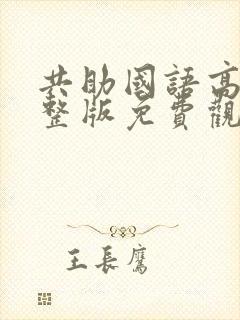 共助國語高
整版免費觀
王長鷹